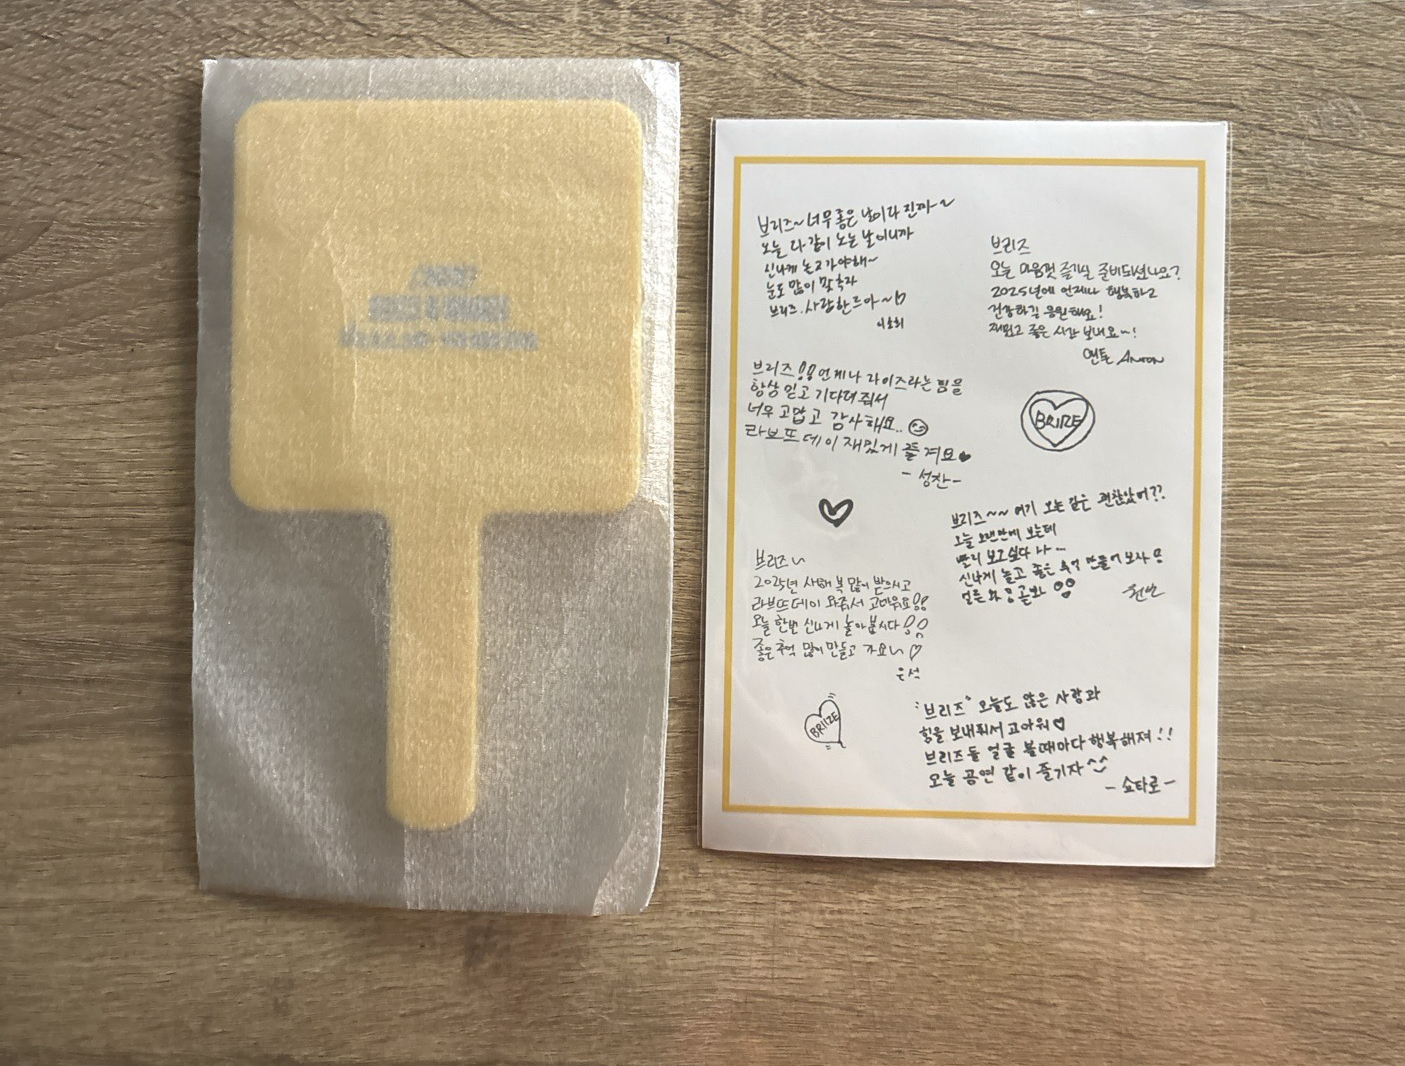 브리즈~ 너무 좋은 날이다 진짜~
오늘 다같이 노는 날이니까
신나게 놀고가야해~
눈도 많이 맞추자
브리즈. 사랑한드아~♡
브리즈
오늘 마음껏 즐기실 준비되셨나요?
2025년에 언제나 행복하고
건강하길 응원해요!
재밌고 좋은 시간 보내요~!
앤톤 ANTON
브리즈!! 언제나 라이즈라는 팀을
항상 믿고 기다려 줘서
너무 고맙고 감사해요..
라브뜨데이 재밌게 즐겨요♥
- 성찬 -
BRIIZE
브리즈~~ 여기 오는 길은 괜찮았어??
오늘 오랜만에 보는데
빨리 보고싶다 나...
신나게 놀고 좋은 추억 만들어 보자
원빈
브리즈~
2025년 새해 복 많이 받으시고
라브뜨데이 와줘서 고마워요!!
오늘 한번 신나게 놀아봅시다!!
좋은 추억 많이 만들고 가요~♡
은석
BRIIZE
"브리즈" 오늘도 많은 사랑과
힘을 보내줘서 고마워♡
브리즈들 얼굴 볼때마다 행복해져!!
오늘 공연 같이 즐기자^^
- 쇼타로 -